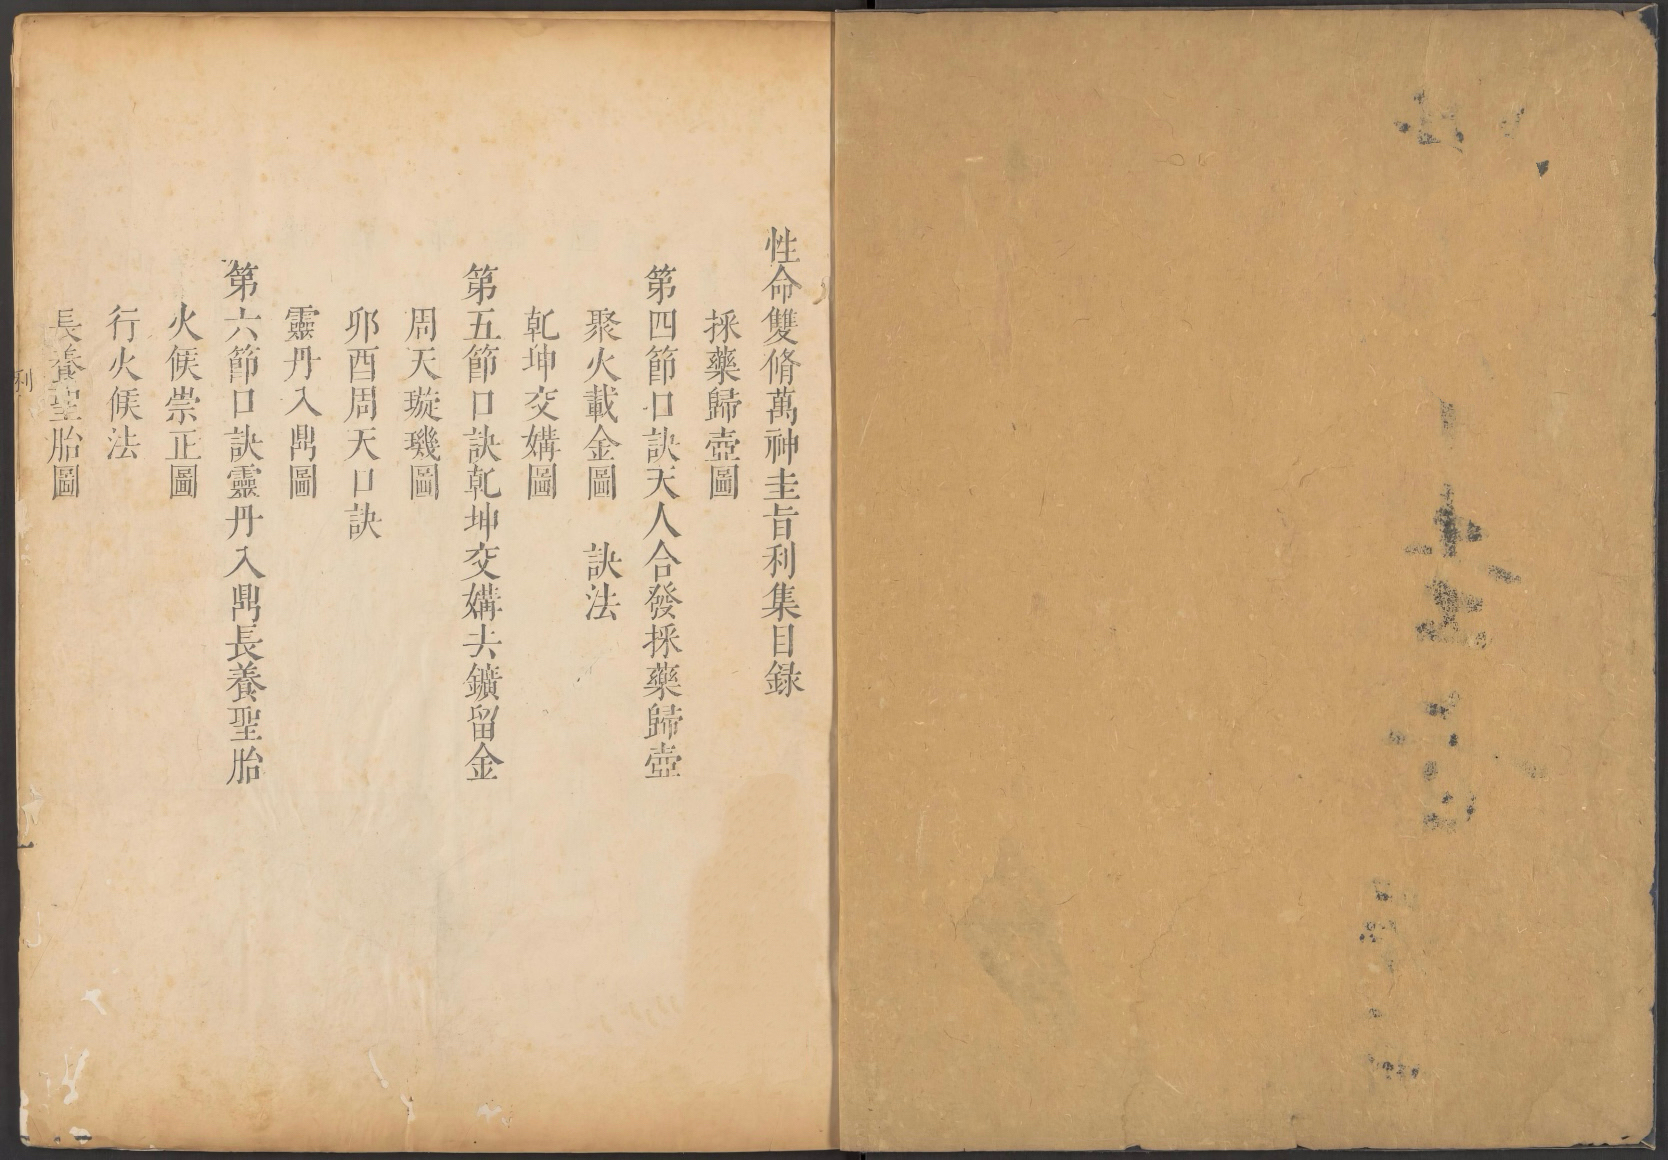 性命雙脩萬神圭旨利集目録
採藥歸壺圖
第四節口訣天人合發採藥歸壺
聚火載金圖　訣法
乾坤交媾圖
第五節口訣乾坤交媾去鑛留金
周天璇璣圖
卯酉周天口訣
靈丹入鼎圖
第六節口訣靈丹入鼎長養聖胎
火候崇正圖
行火候法
長養聖胎圖
利